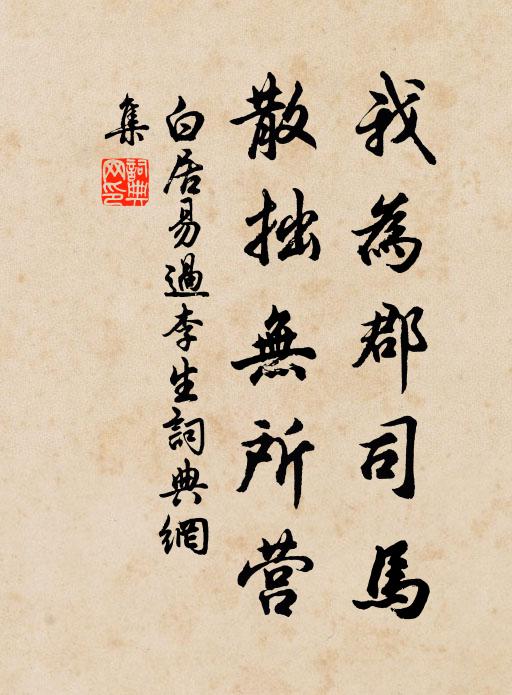 我為郡司馬
散拙無所営
白居易過李生詞典網
集
詞典網印